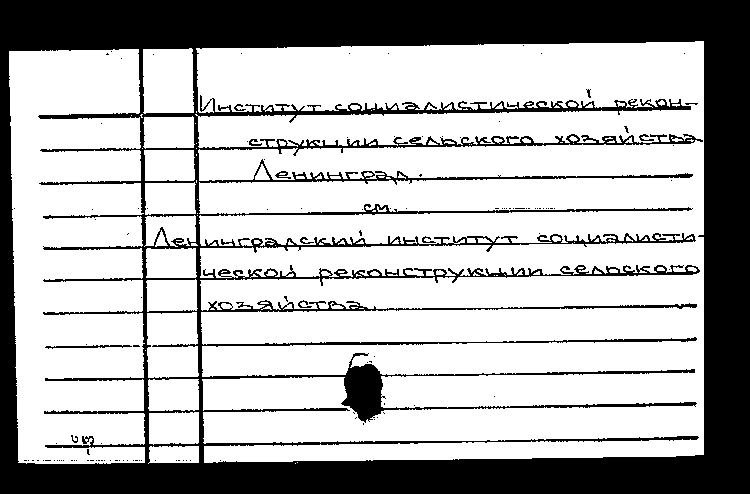 Институт социалистической рекон-
струкции сельского хозяйства.
Ленинград.
см.
Ленинградский институт социалисти-
ческой реконструкции сельского
хозяйства.